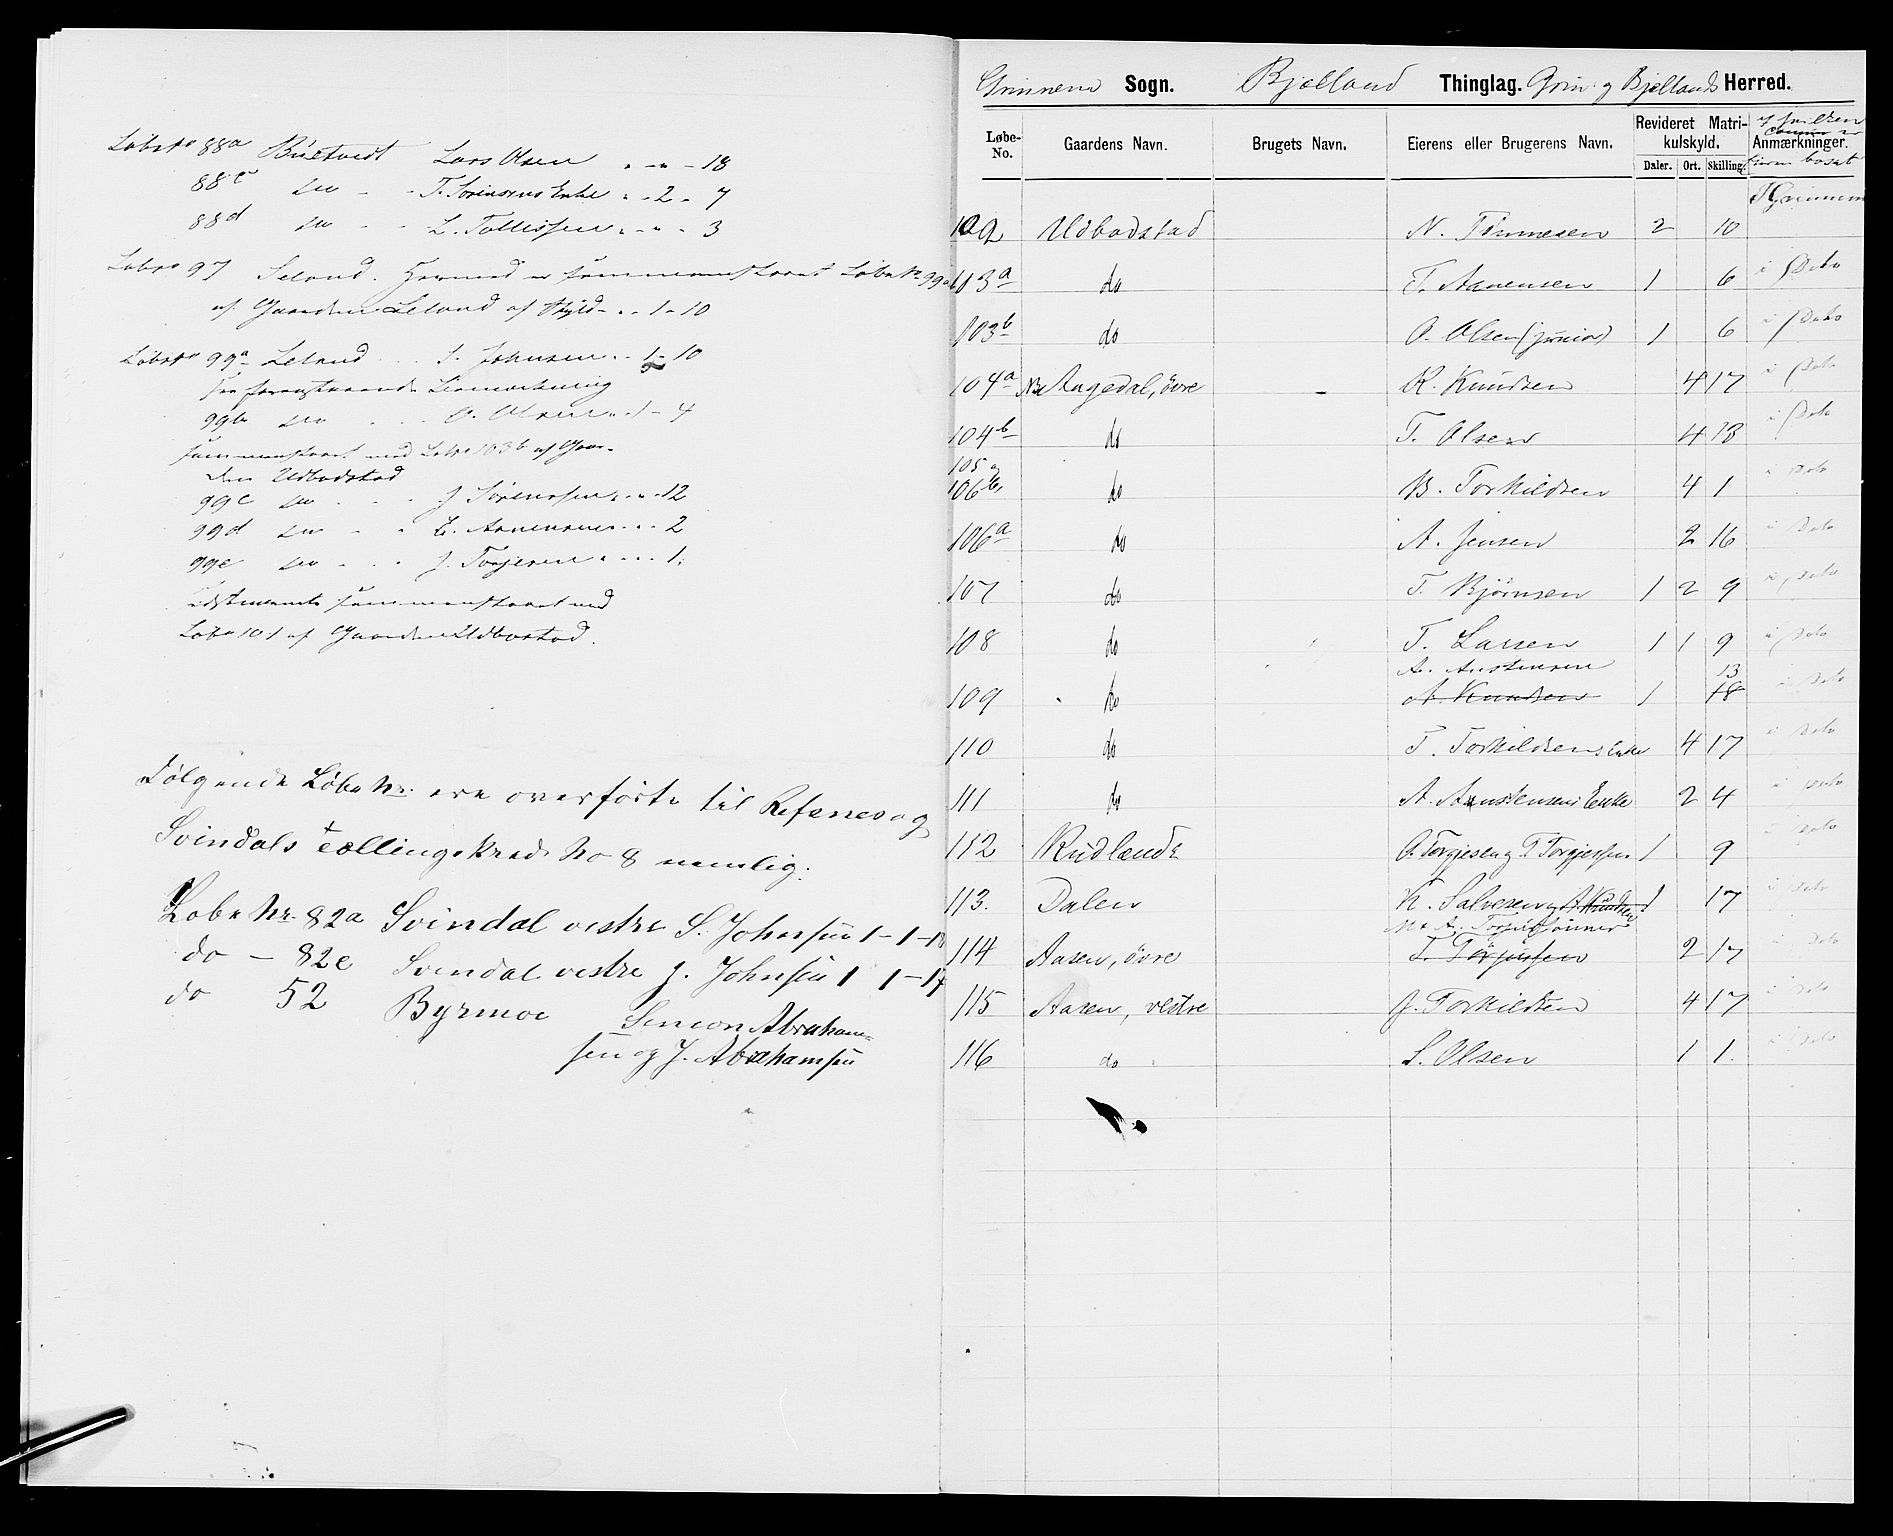 Løbe No 88a Buetvedt Lars Olsen " - " - 18
88c do - - T. Sørensens Enke " - 2 - 7
88d do - - L. Tollefsen " - " - 3
Løbe No 97 Leland. Hermed er sammenskrevet Løbe No 99a
af Gaarden Leland af Skyld - " - 1 - 10
Løbe No 99a Leland - - - J. Johnsen " - 1 - 10
se foranstaaende Anmærkning
99b do - - - O. Olsen " - 1 - 4
sammenskrevet med Løbe 103b af Gaar-
den Udbodstad
99c do - - - J. Sørensen " - " - 12
99d do - - - E. Aanensen " - " - 2
99e do - - - J. Torjesen " - " - 1.
sidstnævnte sammenskrevet med
Løbe 101 af Gaarden Udbostad.
Følgende Løbe Nr. ere overførte til Refsnes og
Svindals tællingskreds No 8 nemlig:
Løbe Nr. 82a Svindal vestre S. Johnsen 1 - 1 - 18
do - 82e Svindal vestre J. Johnsen 1 1 - 17
do 52 Byrmoe Simeon Abraham-
sen og J. Abrahamsen
Grinnem Sogn. Bjelland Thinglag. Grin. og Bjellands Herred.
Løbe-No. Gaardens Navn. Brugets Navn. Eierens eller Brugerens Navn. Revideret Matrikulskyld. Anmærkninger.
Daler. Ort. Skilling.
I Grinnem
102 Udbodstad N. Tønnesen 2 10
103a do T. Aanensen 1 6 i Dito
103b do O. Olsen (junior) 1 6 i Dito
104a Aagedal, øvre K. Knudsen 4 17 i Dito
104b do T. Olsen 4 18 i Dito
105 og
106b, do B. Torkildsen 4 1 i Dito
106a do A. Jensen 2 16 i Dito
107 do T. Bjørnsen 1 2 9 i Dito
108 do T. Larsen 1 1 9 i Dito
A. Austensen 13
109 do A. Knudsen 1 18 i Dito
110 do T. Torkildsens Enke 4 17 i Dito
111 do A. Austensens Enke 2 4 i Dito
112 Rudlende O. Torgjesen og T. Torgjessen 1 9 i Dito
113. Dalen K. Salvesen og A. Knudsen 1 17 i Dito
114 Aasen, øvre T. Torjussen 2 17 i Dito
115 Aasen, vestre J. Torkildsen 4 17 i Dito
116 do L. Olsen 1 1. i Dito